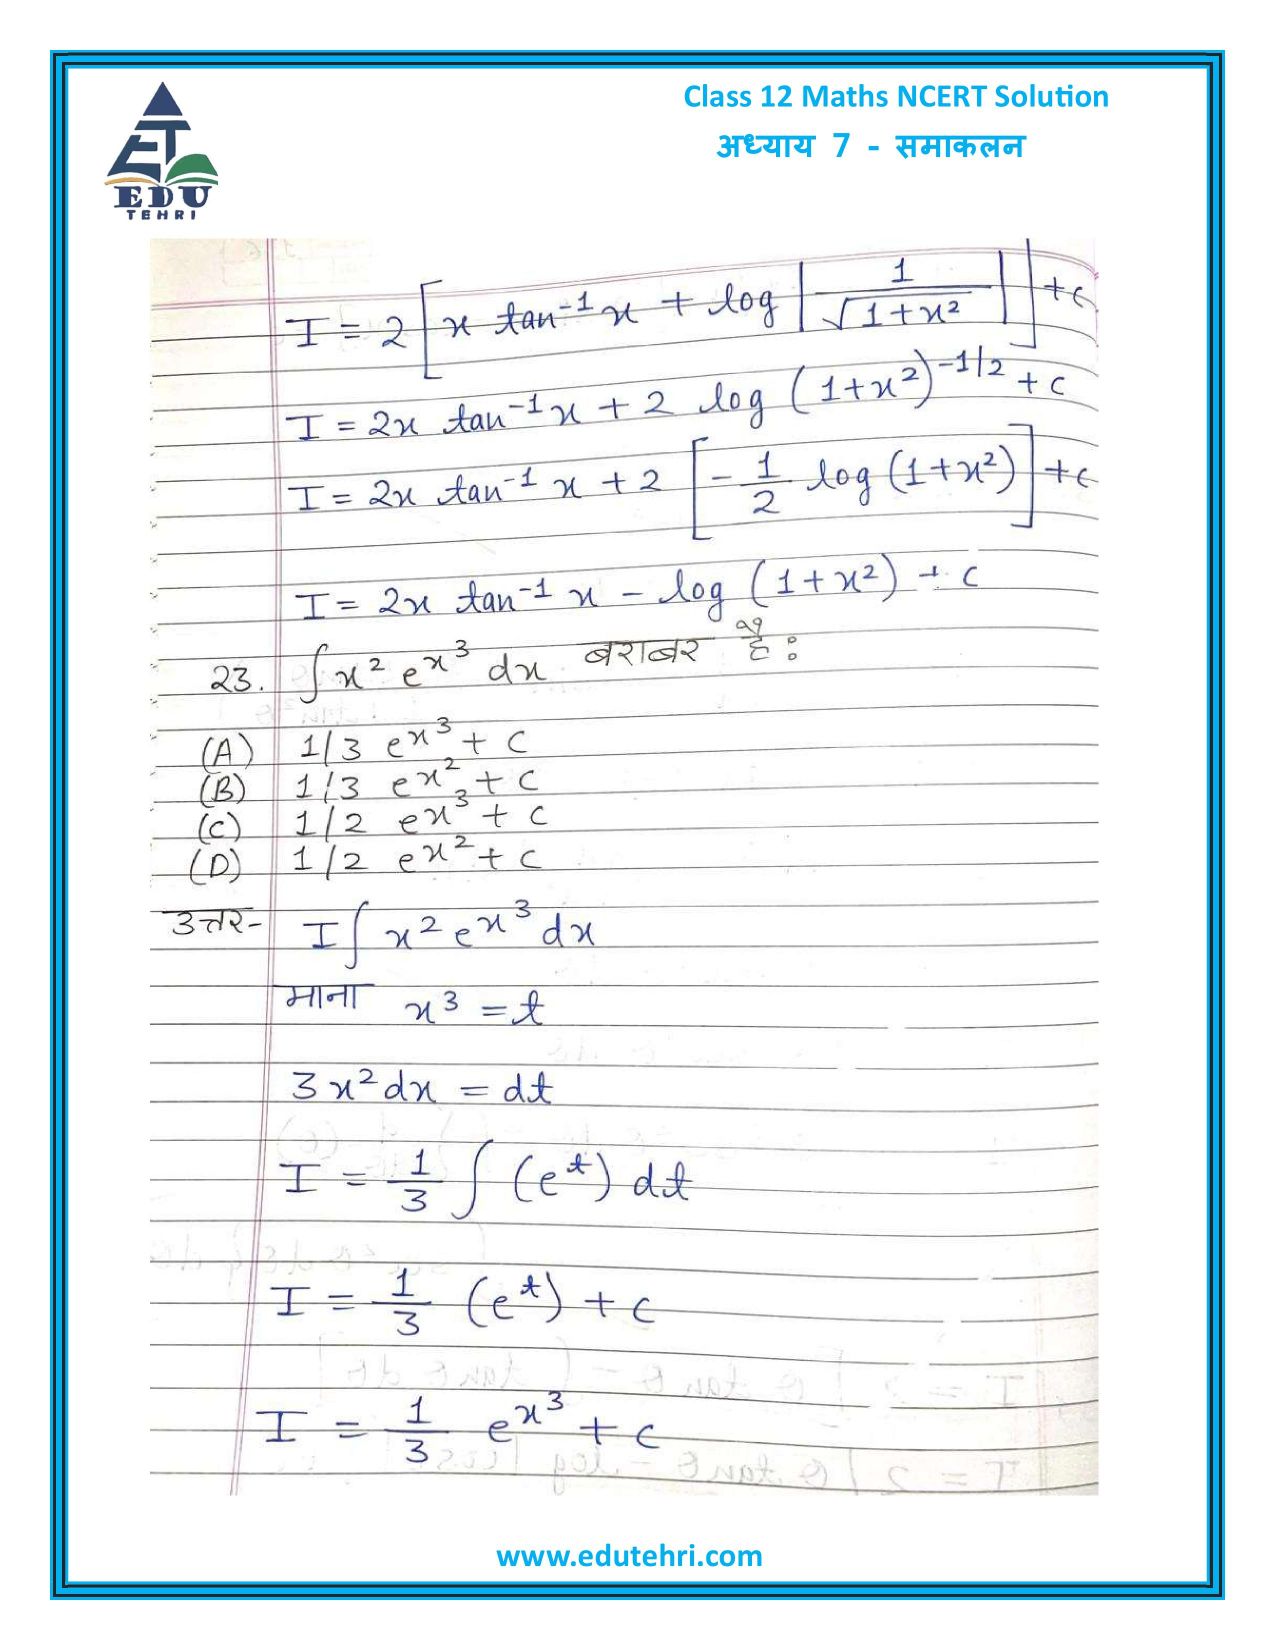 Class 12 Maths NCERT Solution
अध्याय 7 - समाकलन
EDU
TEHRI
I = 2 [x tan⁻¹x + log |1/√(1+x²)|] + c
I = 2x tan⁻¹x + 2 log (1+x²)^(-1/2) + c
I = 2x tan⁻¹x + 2 [-1/2 log (1+x²)] + c
I = 2x tan⁻¹x - log (1+x²) + c
23. ∫x² e^(x³) dx बराबर है:
(A) 1/3 e^(x³) + c
(B) 1/3 e^(x²) + c
(C) 1/2 e^(x³) + c
(D) 1/2 e^(x²) + c
उत्तर- I∫x² e^(x³) dx
माना x³ = t
3x²dx = dt
I = 1/3 ∫(e^t) dt
I = 1/3 (e^t) + c
I = 1/3 e^(x³) + c
www.edutehri.com